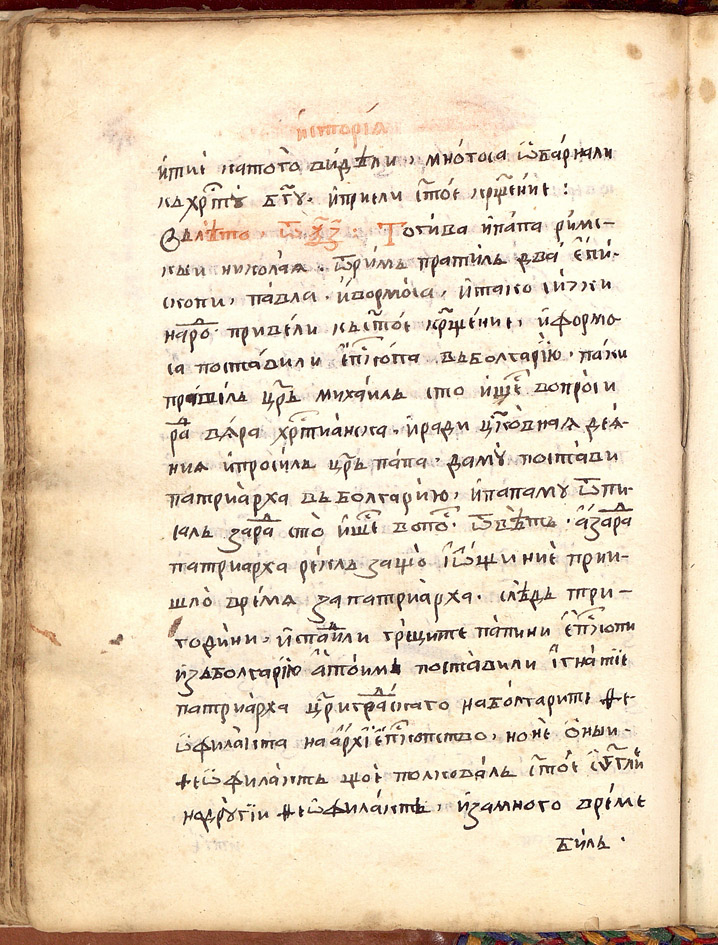 и҆сторїа
и҆тїе като́го ви́дѣли, мно́госа ѿба́рнали
къ хрⷭ҇ту бг҃у. и҆прїели ст҃о́е крⷳ҇ще́нїе:
Въ лѣто, ѿ хр҃. Тоги́ва и҆па́па ри́мс-
кыи никола́я. ѿри́мь пра́тилъ два̀ є҆пи-
скопи, па́вла. и҆ѳормо́са, и҆та́ко сї́чки
наро́ⷣ приве́ли къ ст҃о́е крⷳ҇ще́нїе, и҆формо-
са поста́вили є҆пⷭ҇ко́па въ болга́рїю. па́ки
пра́тилъ цр҃ъ миха́илъ сто и҆ше́ⷭ вопро́си
раⷣ вя́ра хрⷭ҇тїа́нска. и҆ ра́ди цр҃ко́вная дея́-
нїя и҆проси́лъ цр҃ъ па́па. да му̀ поста́ви
патрїа́рха въ болга́рїю, и҆па́паму ѿпи-
салъ за́раⷣ сто и҆ше́ⷭ вопоⷬ҇. ѿвѣтъ. а҆ за́раⷣ
патрїа́рха ре́клъ защо̀ і҆ѡ́щи ни́е прии-
шло̀ вре́мя за патрїа́рха. слѣдъ три-
годи́ни, и҆спа́ⷣили гре́ците па́пини є҆пⷭ҇копи
и҆зъ болга́рїю а҆ то́имъ поста́вили і҆гна́тїе
патрїа́рха цр҃игра́ⷣскаго на бо́лгарите ѳе-
ѡ҆фила́кта на а҆рхїєпⷭ҇копство, но нѐ о҆ныи-
ѳеѡ҆фила́ктъ що̀е толкова́лъ ст҃о́е є҆ѵⷢ҇лїе
но дру́гїи ѳеѡ҆фила́ктъ, и҆за мно́го вре́ме
би́лъ.